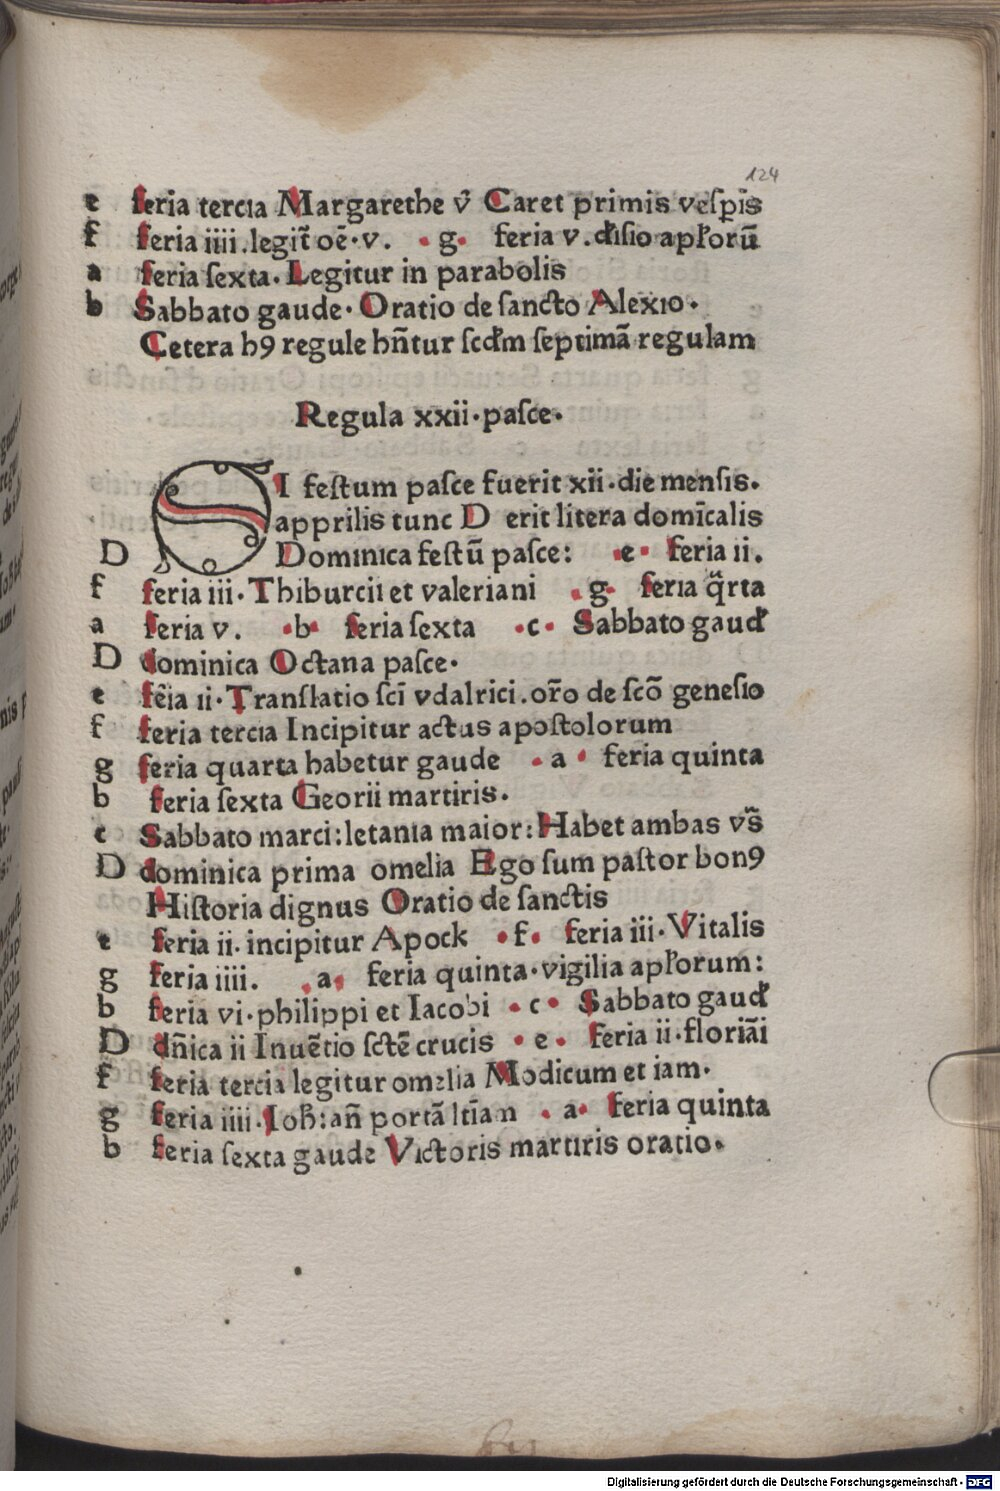 124
e feria tercia Margarethe v̄ Caret primis veſꝑis
f feria iiii.legit̄ oē·v. ·g· feria v.diſio apłorū
a feria ſexta·Legitur in parabolis
b Sabbato gaude·Oratio de ſancto Alexio·
Cetera h9 regule hn̄tur ſcd̄m ſeptimā regulam
Regula xxii·paſce·
SI feſtum paſce fuerit xii·die menſis·
apprilis tunc D erit litera domīcalis
D Dominica feſtū paſce: ·e· feria ii.
f feria iii·Thiburcii et valeriani ·g· feria q̄rta
a feria v. ·b· feria ſexta ·c· Sabbato gaud̄
D dominica Octana paſce·
e fēia ii·Tranſlatio ſcī vdalrici.or̄o de ſcō geneſio
f feria tercia Incipitur actus apoſtolorum
g feria quarta habetur gaude ·a· feria quinta
b feria ſexta Georii martiris·
c Sabbato marci:letania maior:Habet ambas vs̄
D dominica prima omelia Ego ſum paſtor bon9
Hiſtoria dignus Oratio de ſanctis
e feria ii.incipitur Apock ·f· feria iii·Vitalis
g feria iiii. .a. feria quinta·vigilia apłorum:
b feria vi·philippi et Iacobi ·c· Sabbato gaud̄
D dn̄ica ii Inuētio ſctē crucis ·e· feria ii·floriāi
f feria tercia legitur omelia Modicum et iam·
g feria iiii·Ioh̄:an̄ portā ltīam ·a· feria quinta
b feria ſexta gaude Victoris martiris oratio·
Digitalisierung gefördert durch die Deutsche Forschungsgemeinschaft - DFG